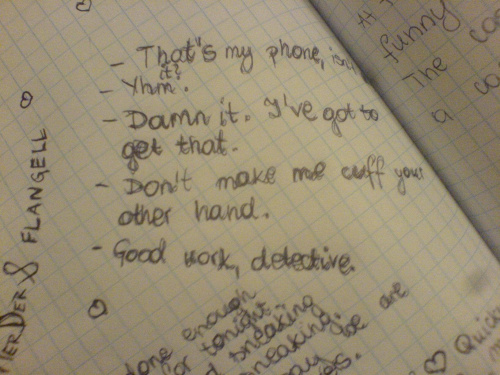 - That's my phone, isn't
it?
- Yhm.
- Damn it. I've got to
get that.
- Don't make me cuff your
other hand.
- Good work, detective.
FLANGELL
done enough
for tonight.
sneaking
are
Quick
funny
The
a